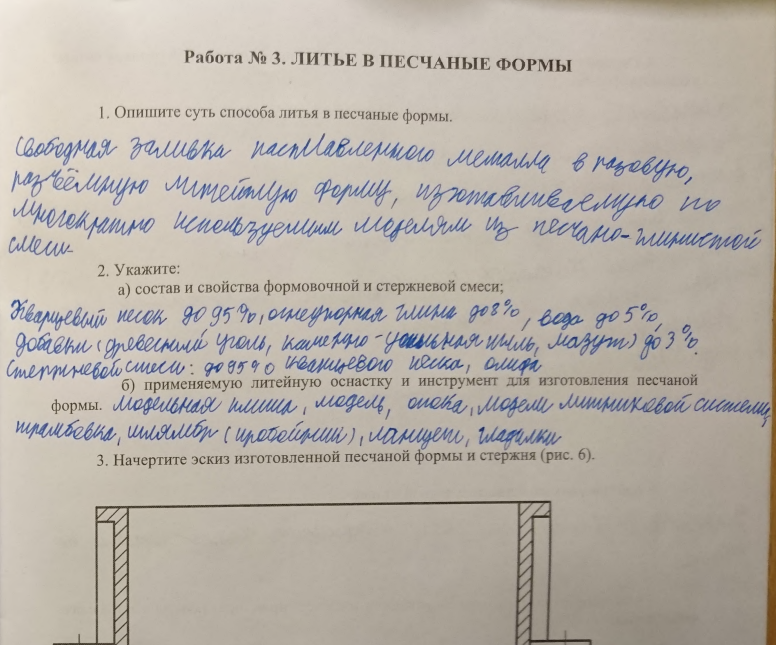 Работа № 3. ЛИТЬЕ В ПЕСЧАНЫЕ ФОРМЫ
1. Опишите суть способа литья в песчаные формы.
Свободная заливка расплавленного металла в разовую,
разъёмную литейную форму, изготавливаемую по
многократно используемым моделям из песчано-глинистой
смеси.
2. Укажите:
а) состав и свойства формовочной и стержневой смеси;
Кварцевый песок до 95%, огнеупорная глина до 8%, вода до 5%,
добавки (древесный уголь, каменно-угольная пыль, мазут) до 3%.
Стержневой смеси: до 95% кварцевого песка, олифа
б) применяемую литейную оснастку и инструмент для изготовления песчаной
формы. Модельная плита, модель, опока, модели литниковой системы,
трамбовка, шлямбр (пробойник), ланцет, гладилки
3. Начертите эскиз изготовленной песчаной формы и стержня (рис. 6).